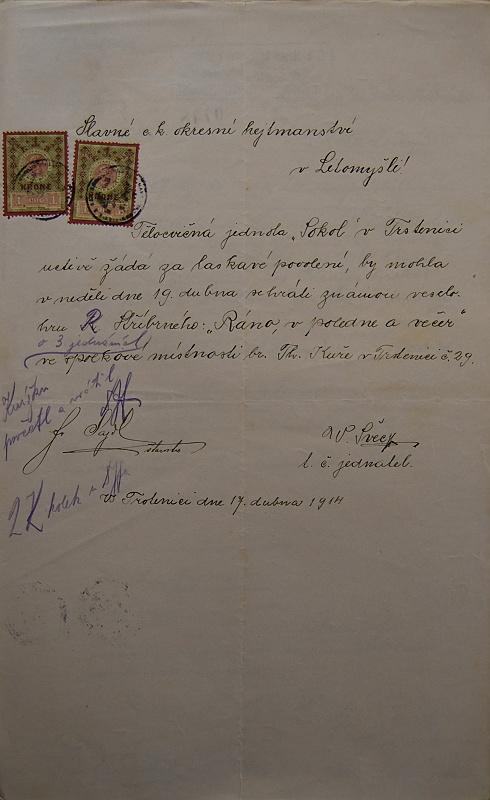 Slavné c. k. okresné hejtmanství
v Litomyšli!
KRONE
1 1
KRONE
1 1
Tělocvičná jednota „Sokol“ v Trstenici
uctivě žádá za laskavé povolení, by mohla
v neděli dne 19. dubna sehráti známou veselo-
hru R. Stříbrného: „Ráno, v poledne a večer“
o 3 jednáních
ve spolkové místnosti br. Th. Kuře v Trstenici č. 29.
Knížku
početl a vrátil
Fr. Sajdl
starosta
V. Švec
t. č. jednatel.
2 K kolek
V Trstenici dne 17. dubna 1914